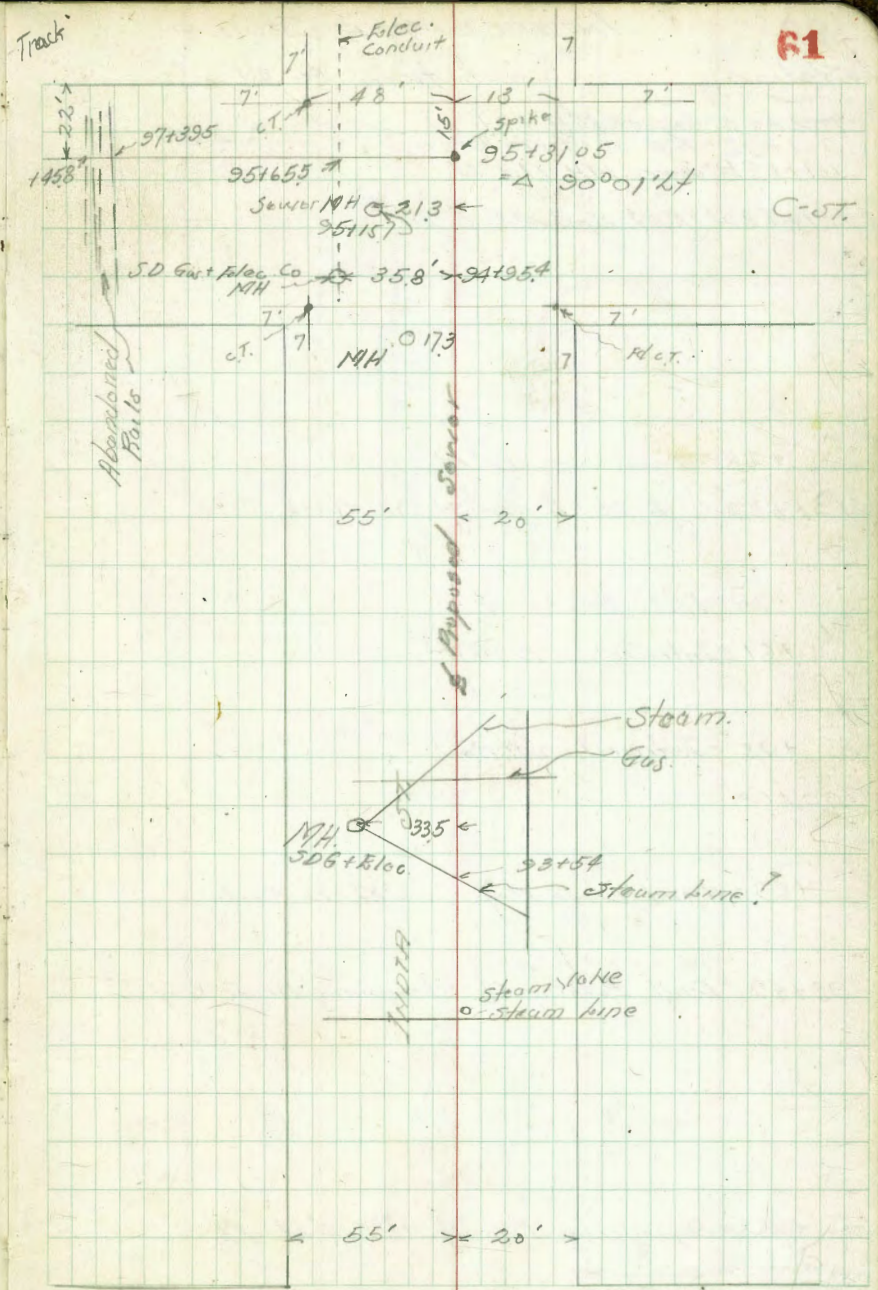 Track
Elec.
Conduit
61
7'
7
7'
48'
13'
7'
22'
c.T.
15'
spike
97+39.5
95+31.05
+458'
95+65.5
=Δ 90°01' Lt.
Sewer MH
21.3
C-ST.
95+15.7
S.D. Gas + Elec Co
MH
35.8'
94+95.4
7'
7'
c.T.
7
MH
17.3
7
Fd c.T.
Abandoned
Rails
Proposed Sewer
55'
20'
Steam.
Gas.
MH.
SDG + Elec.
33.5
93+54
Steam Line ?
INDIA ST
Steam Valve
Steam Line
55'
20'